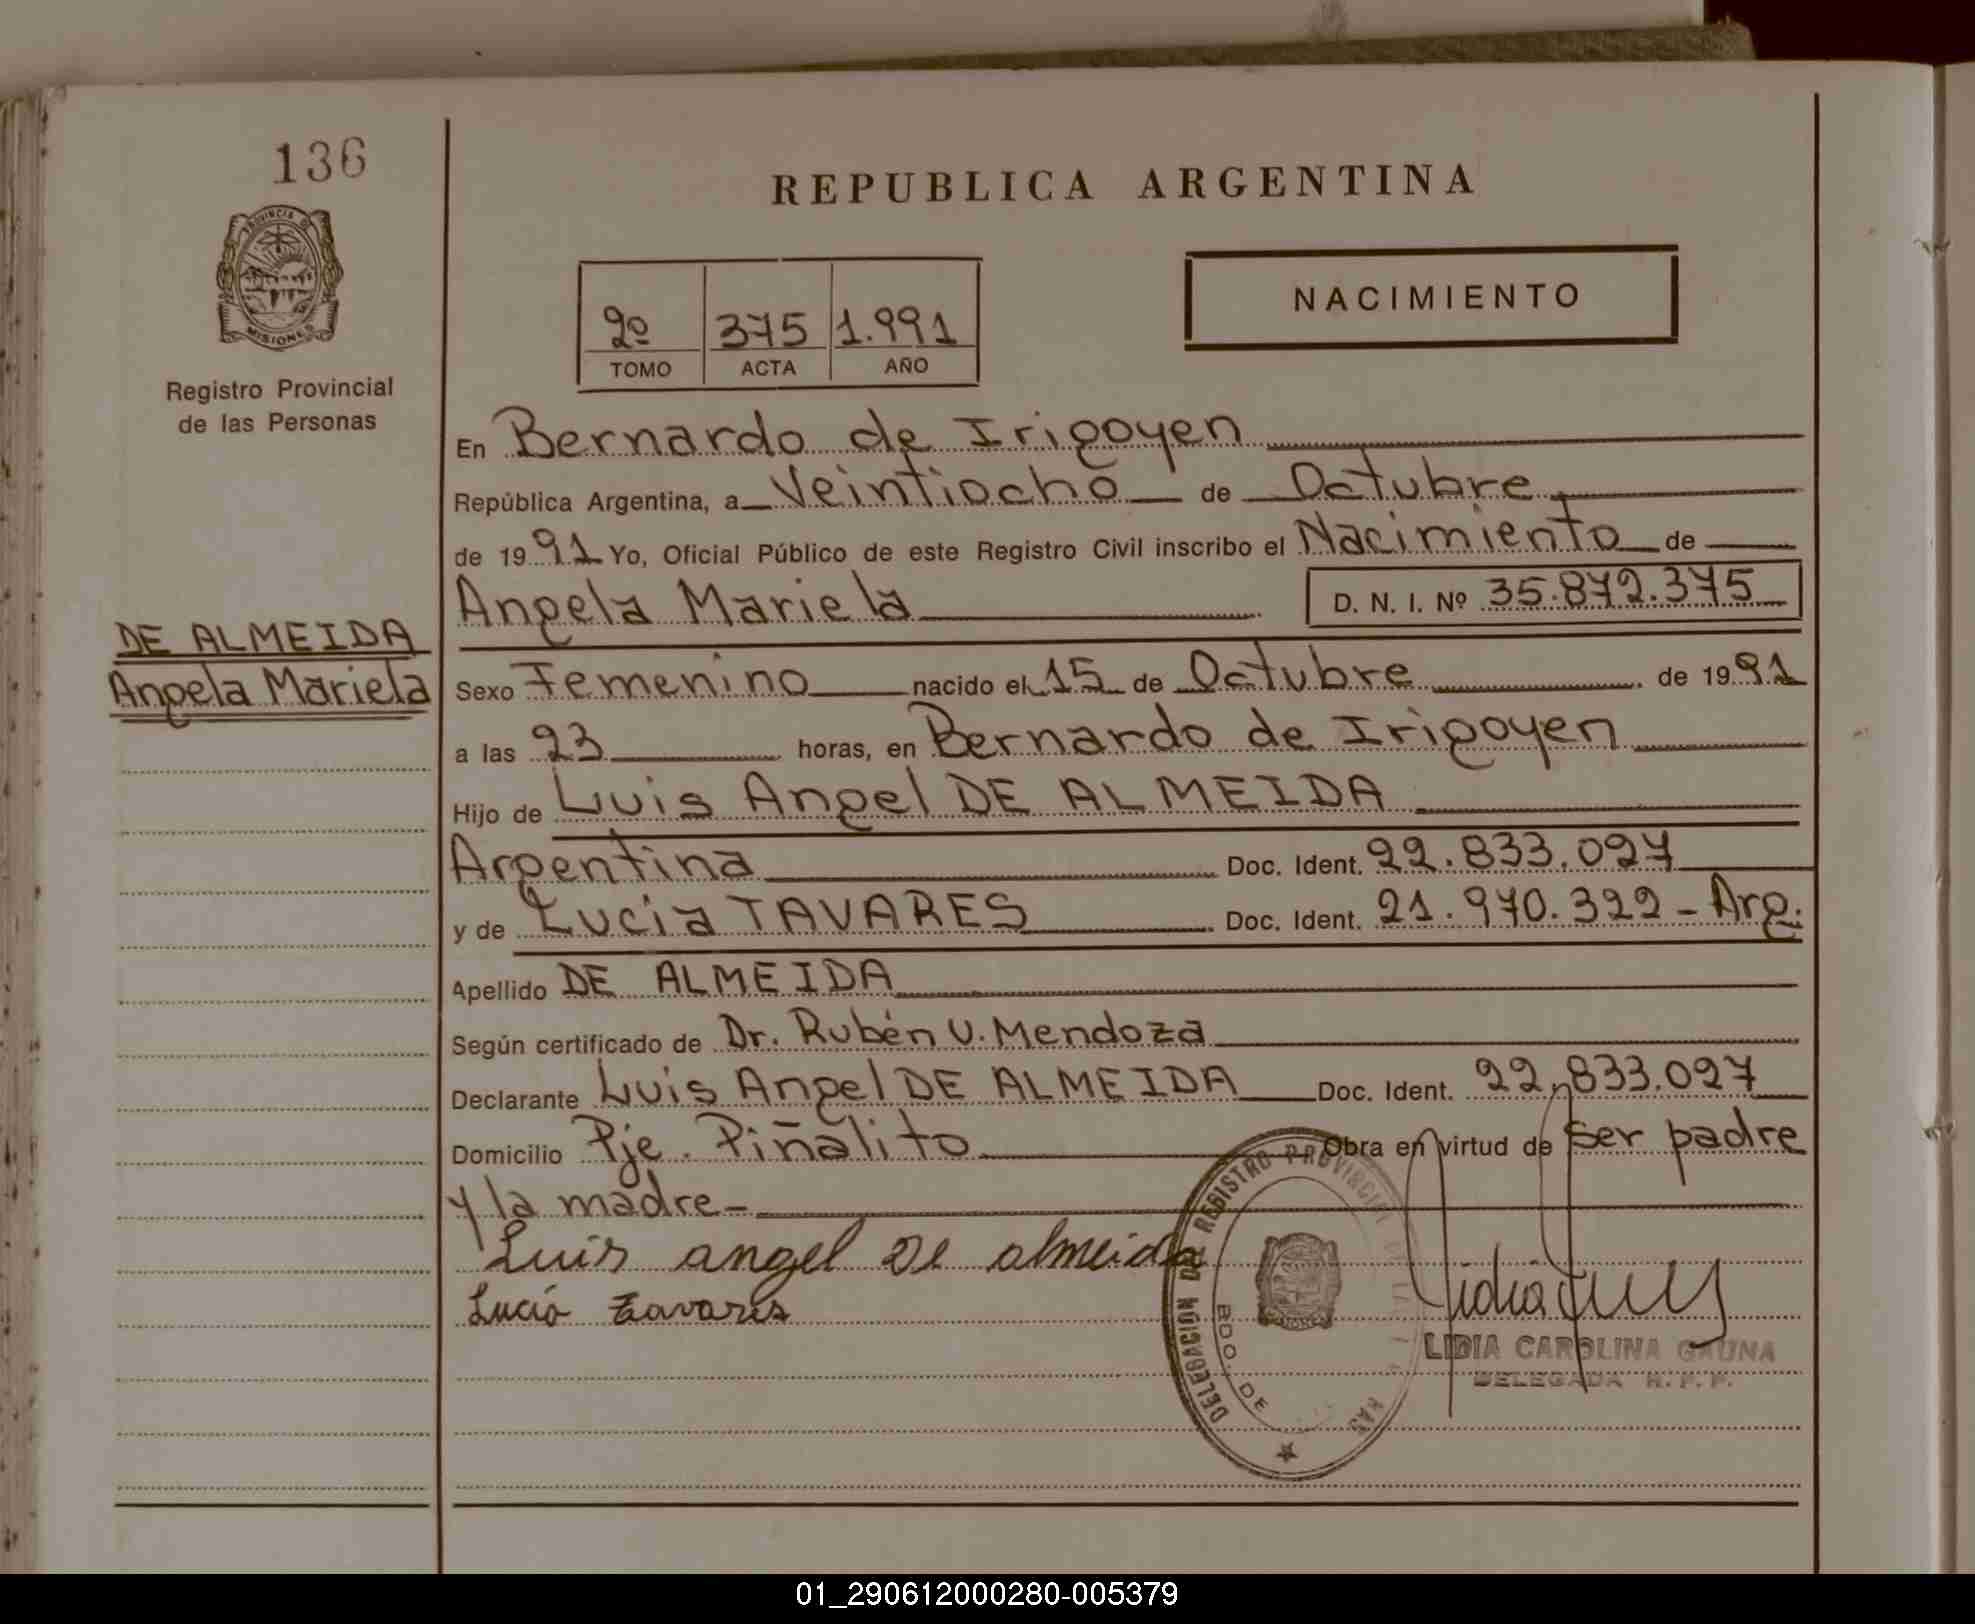 136
PROVINCIA D
MISIONES
Registro Provincial
de las Personas
DE ALMEIDA
Angela Mariela
REPUBLICA ARGENTINA
2º 375 1.991
TOMO ACTA AÑO
NACIMIENTO
En Bernardo de Irigoyen
República Argentina, a Veintiocho de Octubre
de 1991 Yo, Oficial Público de este Registro Civil inscribo el Nacimiento de
Angela Mariela D. N. I. Nº 35.872.375
Sexo Femenino nacido el 15 de Octubre de 1991
a las 23 horas, en Bernardo de Irigoyen
Hijo de Luis Angel DE ALMEIDA
Argentina Doc. Ident. 22.833.027
y de Lucia TAVARES Doc. Ident. 21.970.322 - Arg.
Apellido DE ALMEIDA
Según certificado de Dr. Rubén V. Mendoza
Declarante Luis Angel DE ALMEIDA Doc. Ident. 22.833.027
Domicilio Pje. Piñalito Obra en virtud de ser padre
y la madre-
Luis angel De almeida
Lucia Tavares
DELEGACION DE REGISTRO PROVINCIAL DE LAS
BDO. DE
LIDIA CAROLINA GAUNA
DELEGADA R. P. P.
01_290612000280-005379